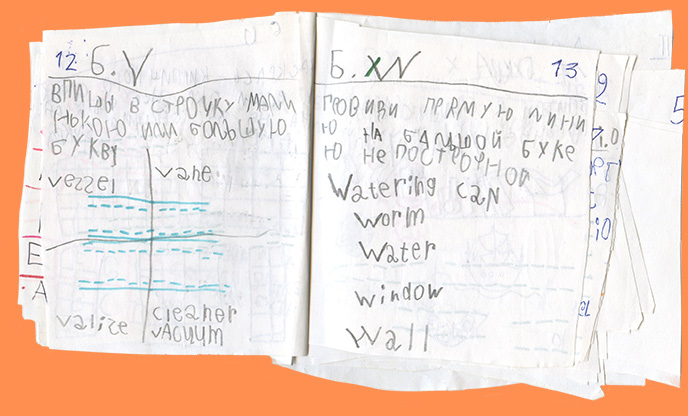 12 Б. V
ВПИШЫ В СТРОЧКУ МАЛИ
НЬКОЮ ИЛИ БОЛЬШУЮ
БУКВУ
vezzel
vane
valize
cleaner
vACUUM
Б. XW 13
ПРОВИДИ ПРЯМУЮ ЛИНИ
Ю НА БАЛЬШОЙ БУКЕ
Ю НЕ ПОСТРОЧНОЙ
Watering CAN
worm
Water
window
Wall
Е
А
9
5